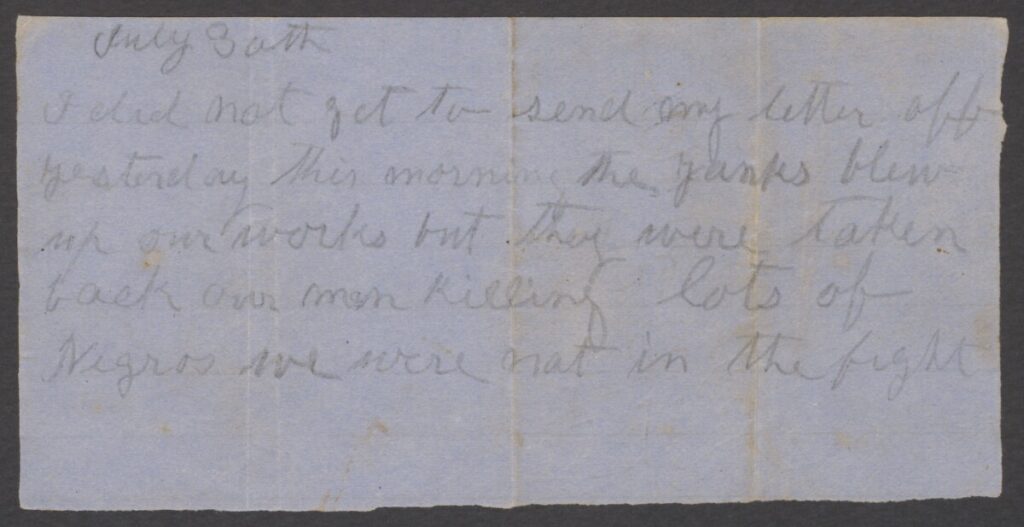 July 30th
I did not get to send my letter off
yesterday this morning the yanks blew
up our works but they were taken
back our men killing lots of
Negros we were not in the fight